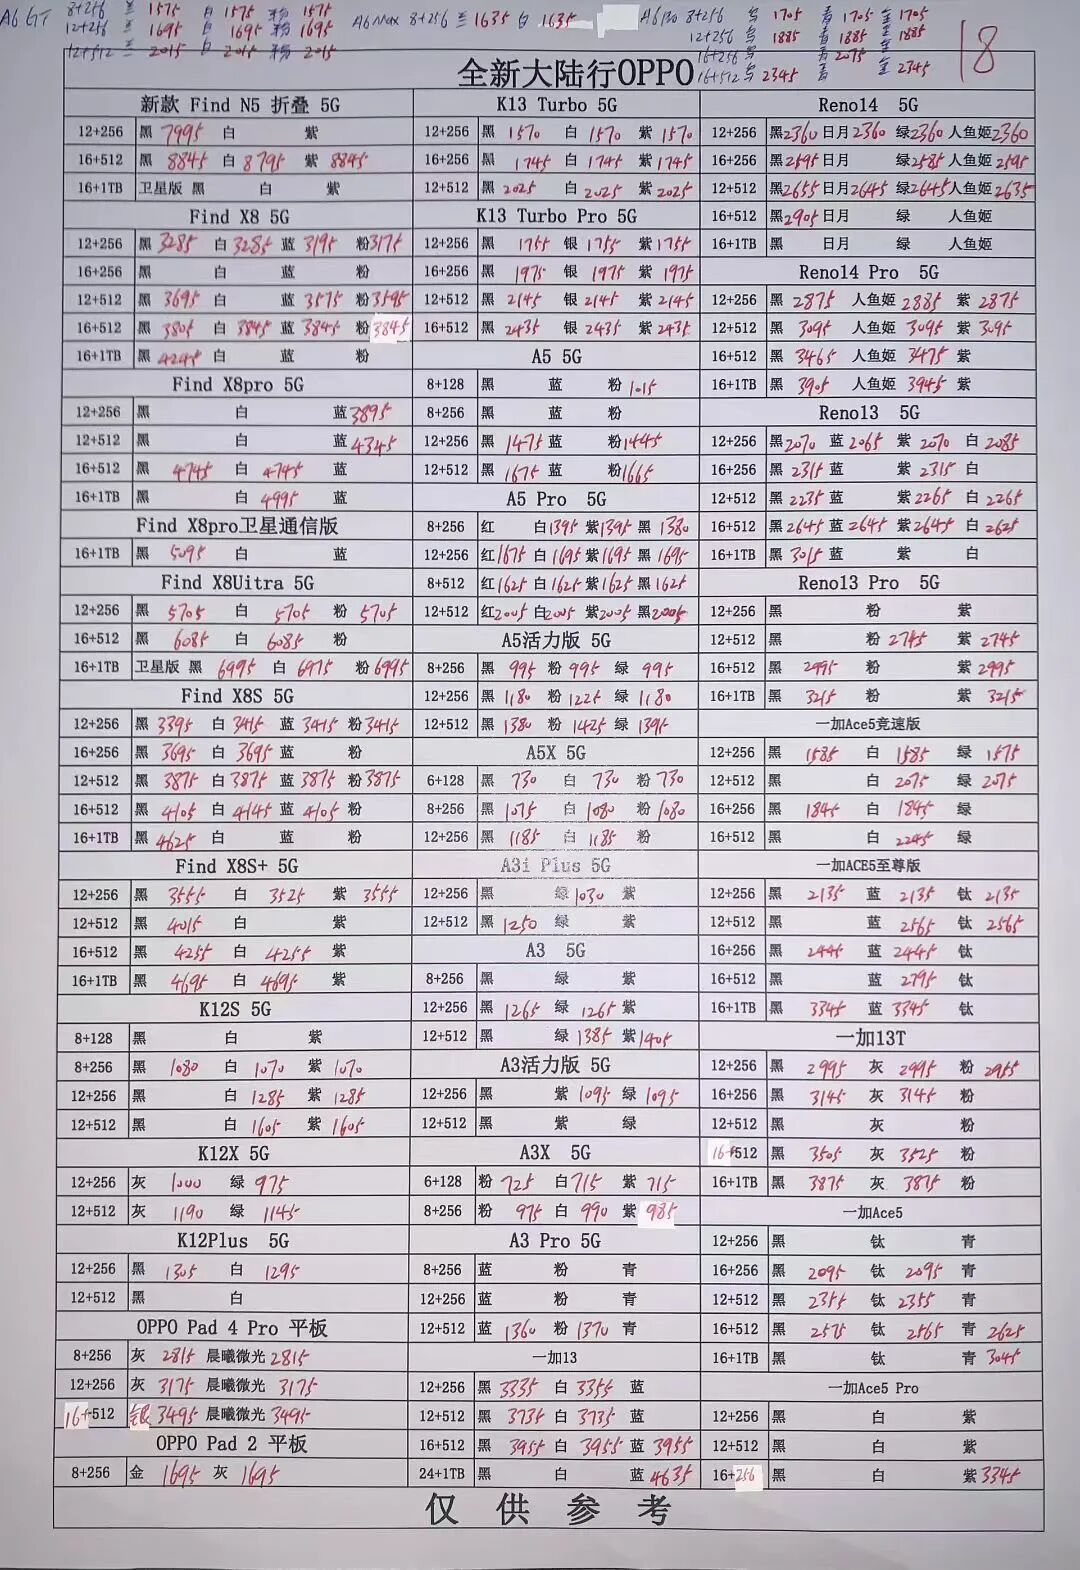 A6 GT 8+256 兰 1575 白 1575 粉 1575
12+256 兰 1695 白 1695 粉 1695
12+512 兰 2015 白 2015 粉 2015
A6 Max 8+256 兰 1635 白 1635
A6 Pro 8+256 1705 青 1705 金 1705
12+256 1885 青 1885 金 1885
16+256 青 2075
16+512 2345 金 2345
18
全新大陆行OPPO
新款 Find N5 折叠 5G
12+256 黑 7995 白 紫
16+512 黑 8845 白 8795 紫 8845
16+1TB 卫星版 黑 白 紫
Find X8 5G
12+256 黑 3285 白 3285 蓝 3195 粉 3175
16+256 黑 白 蓝 粉
12+512 黑 3695 白 蓝 3575 粉 3595
16+512 黑 3805 白 3845 蓝 3845 粉 3845
16+1TB 黑 4245 白 蓝 粉
Find X8pro 5G
12+256 黑 白 蓝 3895
12+512 黑 白 蓝 4345
16+512 黑 4745 白 4745 蓝
16+1TB 黑 白 4995 蓝
Find X8pro卫星通信版
16+1TB 黑 5095 白 蓝
Find X8Uitra 5G
12+256 黑 5705 白 5705 粉 5705
16+512 黑 6085 白 6085 粉
16+1TB 卫星版 黑 6995 白 6975 粉 6995
Find X8S 5G
12+256 黑 3395 白 3415 蓝 3415 粉 3415
16+256 黑 3695 白 3695 蓝 粉
12+512 黑 3875 白 3875 蓝 3875 粉 3875
16+512 黑 4105 白 4145 蓝 4105 粉
16+1TB 黑 4625 白 蓝 粉
Find X8S+ 5G
12+256 黑 3555 白 3525 紫 3555
12+512 黑 4015 白 紫
16+512 黑 4255 白 4255 紫
16+1TB 黑 4695 白 4695 紫
K12S 5G
8+128 黑 白 紫
8+256 黑 1080 白 1070 紫 1070
12+256 黑 白 1285 紫 1285
12+512 黑 白 1605 紫 1605
K12X 5G
12+256 灰 1000 绿 975
12+512 灰 1190 绿 1145
K12Plus 5G
12+256 黑 1305 白 1295
12+512 黑 白
OPPO Pad 4 Pro 平板
8+256 灰 2815 晨曦微光 2815
12+256 灰 3175 晨曦微光 3175
16+512 银 3495 晨曦微光 3495
OPPO Pad 2 平板
8+256 金 1695 灰 1695
K13 Turbo 5G
12+256 黑 1570 白 1570 紫 1570
16+256 黑 1745 白 1745 紫 1745
12+512 黑 2025 白 2025 紫 2025
K13 Turbo Pro 5G
12+256 黑 1755 银 1755 紫 1755
16+256 黑 1975 银 1975 紫 1975
12+512 黑 2145 银 2145 紫 2145
16+512 黑 2435 银 2435 紫 2435
A5 5G
8+128 黑 蓝 粉 1015
8+256 黑 蓝 粉
12+256 黑 1475 蓝 粉 1445
12+512 黑 1675 蓝 粉 1665
A5 Pro 5G
8+256 红 白 1395 紫 1395 黑 1380
12+256 红 1675 白 1695 紫 1695 黑 1695
8+512 红 1625 白 1625 紫 1625 黑 1625
12+512 红 2005 白 2005 紫 2005 黑 2005
A5活力版 5G
8+256 黑 995 粉 995 绿 995
12+256 黑 1180 粉 1225 绿 1180
12+512 黑 1380 粉 1425 绿 1395
A5X 5G
6+128 黑 730 白 730 粉 730
8+256 黑 1075 白 1080 粉 1080
12+256 黑 1185 白 1185 粉
A3i Plus 5G
12+256 黑 绿 1030 紫
12+512 黑 1250 绿 紫
A3 5G
8+256 黑 绿 紫
12+256 黑 1265 绿 1265 紫
12+512 黑 绿 1385 紫 1405
A3活力版 5G
12+256 黑 紫 1095 绿 1095
12+512 黑 紫 绿
A3X 5G
6+128 粉 725 白 715 紫 715
8+256 粉 975 白 990 紫 985
A3 Pro 5G
8+256 蓝 粉 青
12+256 蓝 粉 青
12+512 蓝 1360 粉 1370 青
一加13
12+256 黑 3335 白 3355 蓝
12+512 黑 3735 白 3735 蓝
16+512 黑 3955 白 3955 蓝 3955
24+1TB 黑 白 蓝 4635
Reno14 5G
12+256 黑 2360 日月 2360 绿 2360 人鱼姬 2360
16+256 黑 2595 日月 绿 2585 人鱼姬 2595
12+512 黑 2655 日月 2645 绿 2645 人鱼姬 2635
16+512 黑 2905 日月 绿 人鱼姬
16+1TB 黑 日月 绿 人鱼姬
Reno14 Pro 5G
12+256 黑 2875 人鱼姬 2885 紫 2875
12+512 黑 3095 人鱼姬 3095 紫 3095
16+512 黑 3465 人鱼姬 3475 紫
16+1TB 黑 3905 人鱼姬 3945 紫
Reno13 5G
12+256 黑 2070 蓝 2065 紫 2070 白 2085
16+256 黑 2315 蓝 紫 2315 白
12+512 黑 2235 蓝 紫 2265 白 2265
16+512 黑 2645 蓝 2645 紫 2645 白 2625
16+1TB 黑 3015 蓝 紫 白
Reno13 Pro 5G
12+256 黑 粉 紫
12+512 黑 粉 2745 紫 2745
16+512 黑 2995 粉 紫 2995
16+1TB 黑 3215 粉 紫 3215
一加Ace5竞速版
12+256 黑 1585 白 1585 绿 1575
12+512 黑 白 2075 绿 2075
16+256 黑 1845 白 1845 绿
16+512 黑 白 2245 绿
一加ACE5至尊版
12+256 黑 2135 蓝 2135 钛 2135
12+512 黑 蓝 2565 钛 2565
16+256 黑 2445 蓝 2445 钛
16+512 黑 蓝 2795 钛
16+1TB 黑 3345 蓝 3345 钛
一加13T
12+256 黑 2995 灰 2995 粉 2955
16+256 黑 3145 灰 3145 粉
12+512 黑 灰 粉
16+512 黑 3505 灰 3525 粉
16+1TB 黑 3875 灰 3875 粉
一加Ace5
12+256 黑 钛 青
16+256 黑 2095 钛 2095 青
12+512 黑 2355 钛 2355 青
16+512 黑 2575 钛 2565 青 2625
16+1TB 黑 钛 青 3045
一加Ace5 Pro
12+256 黑 白 紫
12+512 黑 白 紫
16+256 黑 白 紫 3345
仅供参考